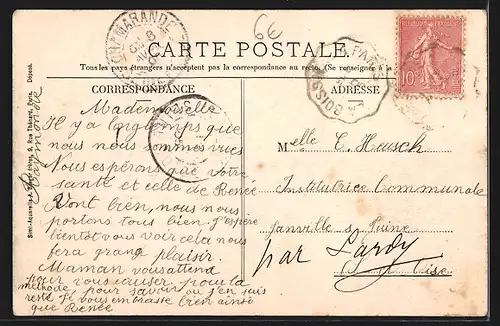 CHAMARANDE
6€
CARTE POSTALE
Tous les pays étrangers n'acceptent pas la correspondance au recto. (Se renseigner à la
CORRESPONDANCE
ADRESSE
10c
PARIS
Mademoiselle
Il y a longtemps que
nous nous sommes vues
Nous espérons que votre
santé et celle de Renée
Vont bien, nous nous
portons tous bien. J'espère
bientôt vous voir cela nous
fera grand plaisir.
Maman vous attend
pour vous causer pour la
méthode pour savoir ou j'en suis
resté Je vous embrasse bien ainsi
que Renée
Raymonde
Melle C. Heusch
Institutrice Communale
Janville s/ Juine
par Lardy
S. et Oise
Simi-Aquarelle A. Dépôt